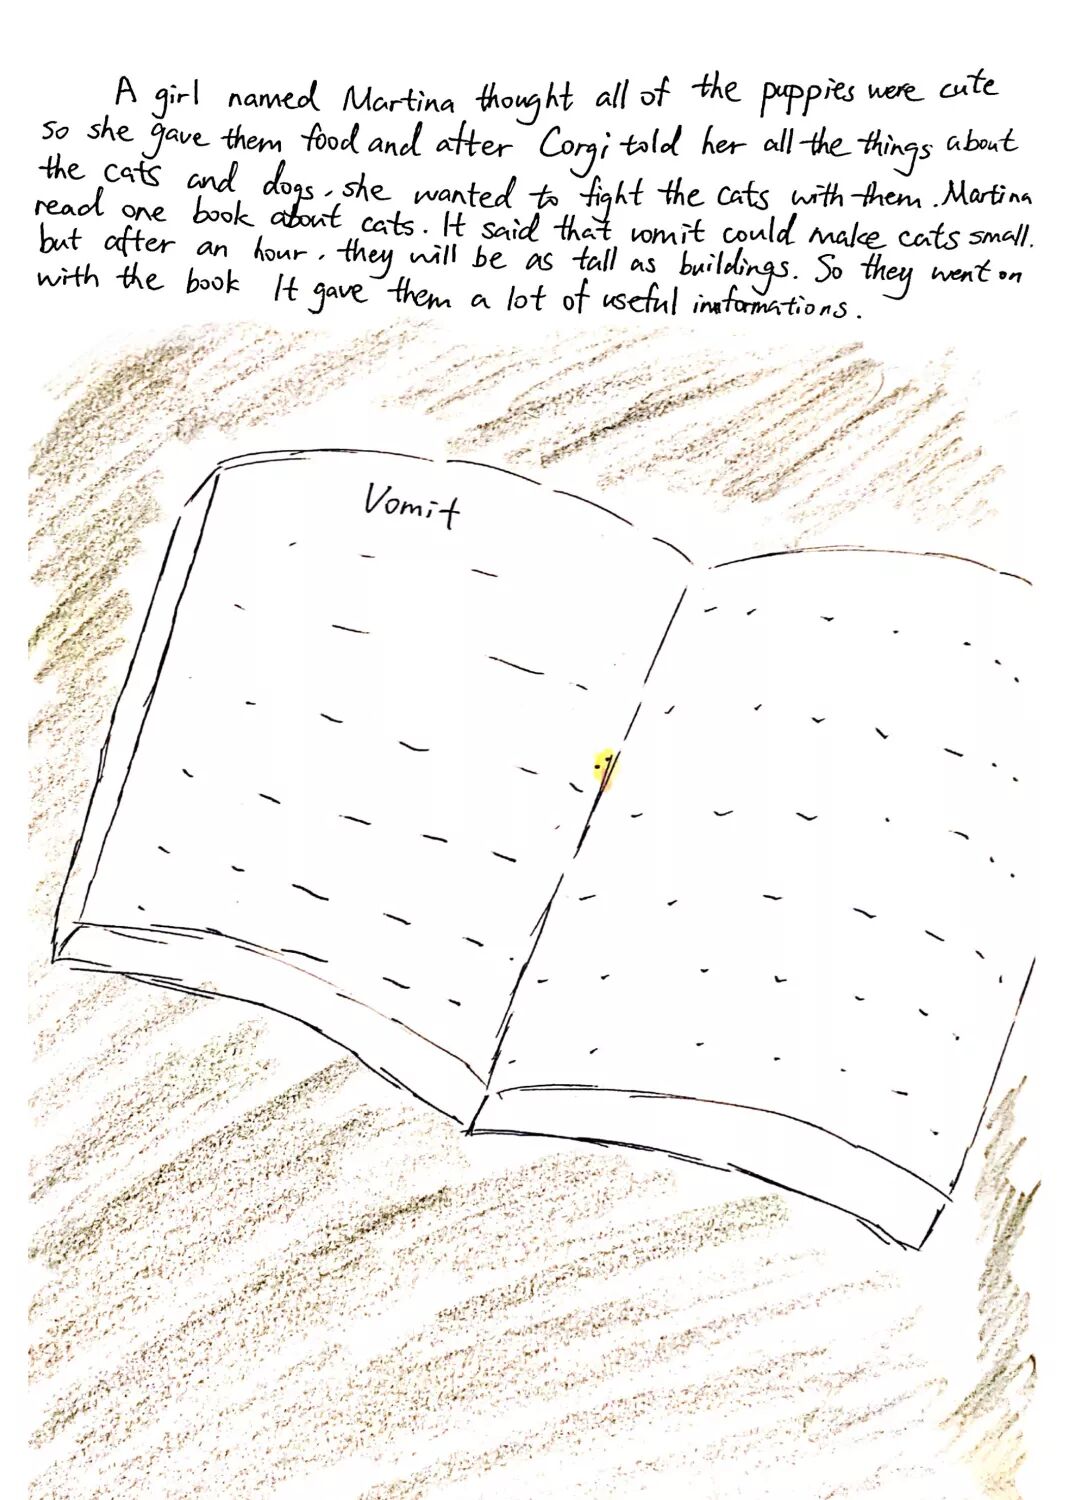 A girl named Martina thought all of the puppies were cute
so she gave them food and after Corgi told her all the things about
the cats and dogs, she wanted to fight the cats with them. Martina
read one book about cats. It said that vomit could make cats small.
but after an hour, they will be as tall as buildings. So they went on
with the book It gave them a lot of useful informations.
Vomit